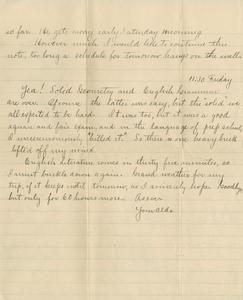 so far. He gets away early Saturday morning.
However much I would like to continue this
note, too long a schedule for tomorrow hangs on the walls.
11:30 Friday
Yea! Solid Geometry and English Grammar
are over. Of course the latter was easy, but the "solid" we
all expected to be hard. It was too, but it was a good
square and fair exam, and in the language of prep school,
I unceremoniously, "killed it." So there is one heavy brick
lifted off my mind.
English Literature comes in thirty five minutes, so
I must buckle down again. Grand weather for my
trip, if it keeps until tomorrow, as I sincerely hope. Goodby
but only for 60 hours more.
Your Aldo.